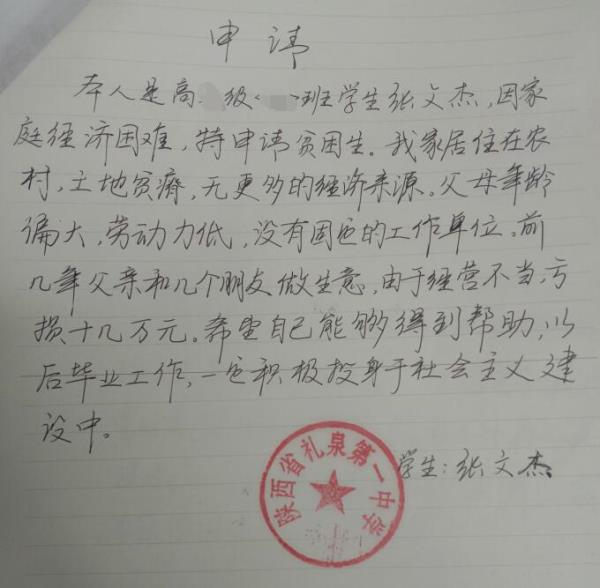 申请
本人是高 级 班学生张文杰,因家
庭经济困难,特申请贫困生。我家居住在农
村,土地贫瘠,无更多的经济来源。父母年龄
偏大,劳动力低,没有固定的工作单位。前
几年父亲和几个朋友做生意,由于经营不当,亏
损十几万元。希望自己能够得到帮助,以
后毕业工作,一定积极投身于社会主义建
设中。
学生:张文杰
陕西省礼泉第一中学